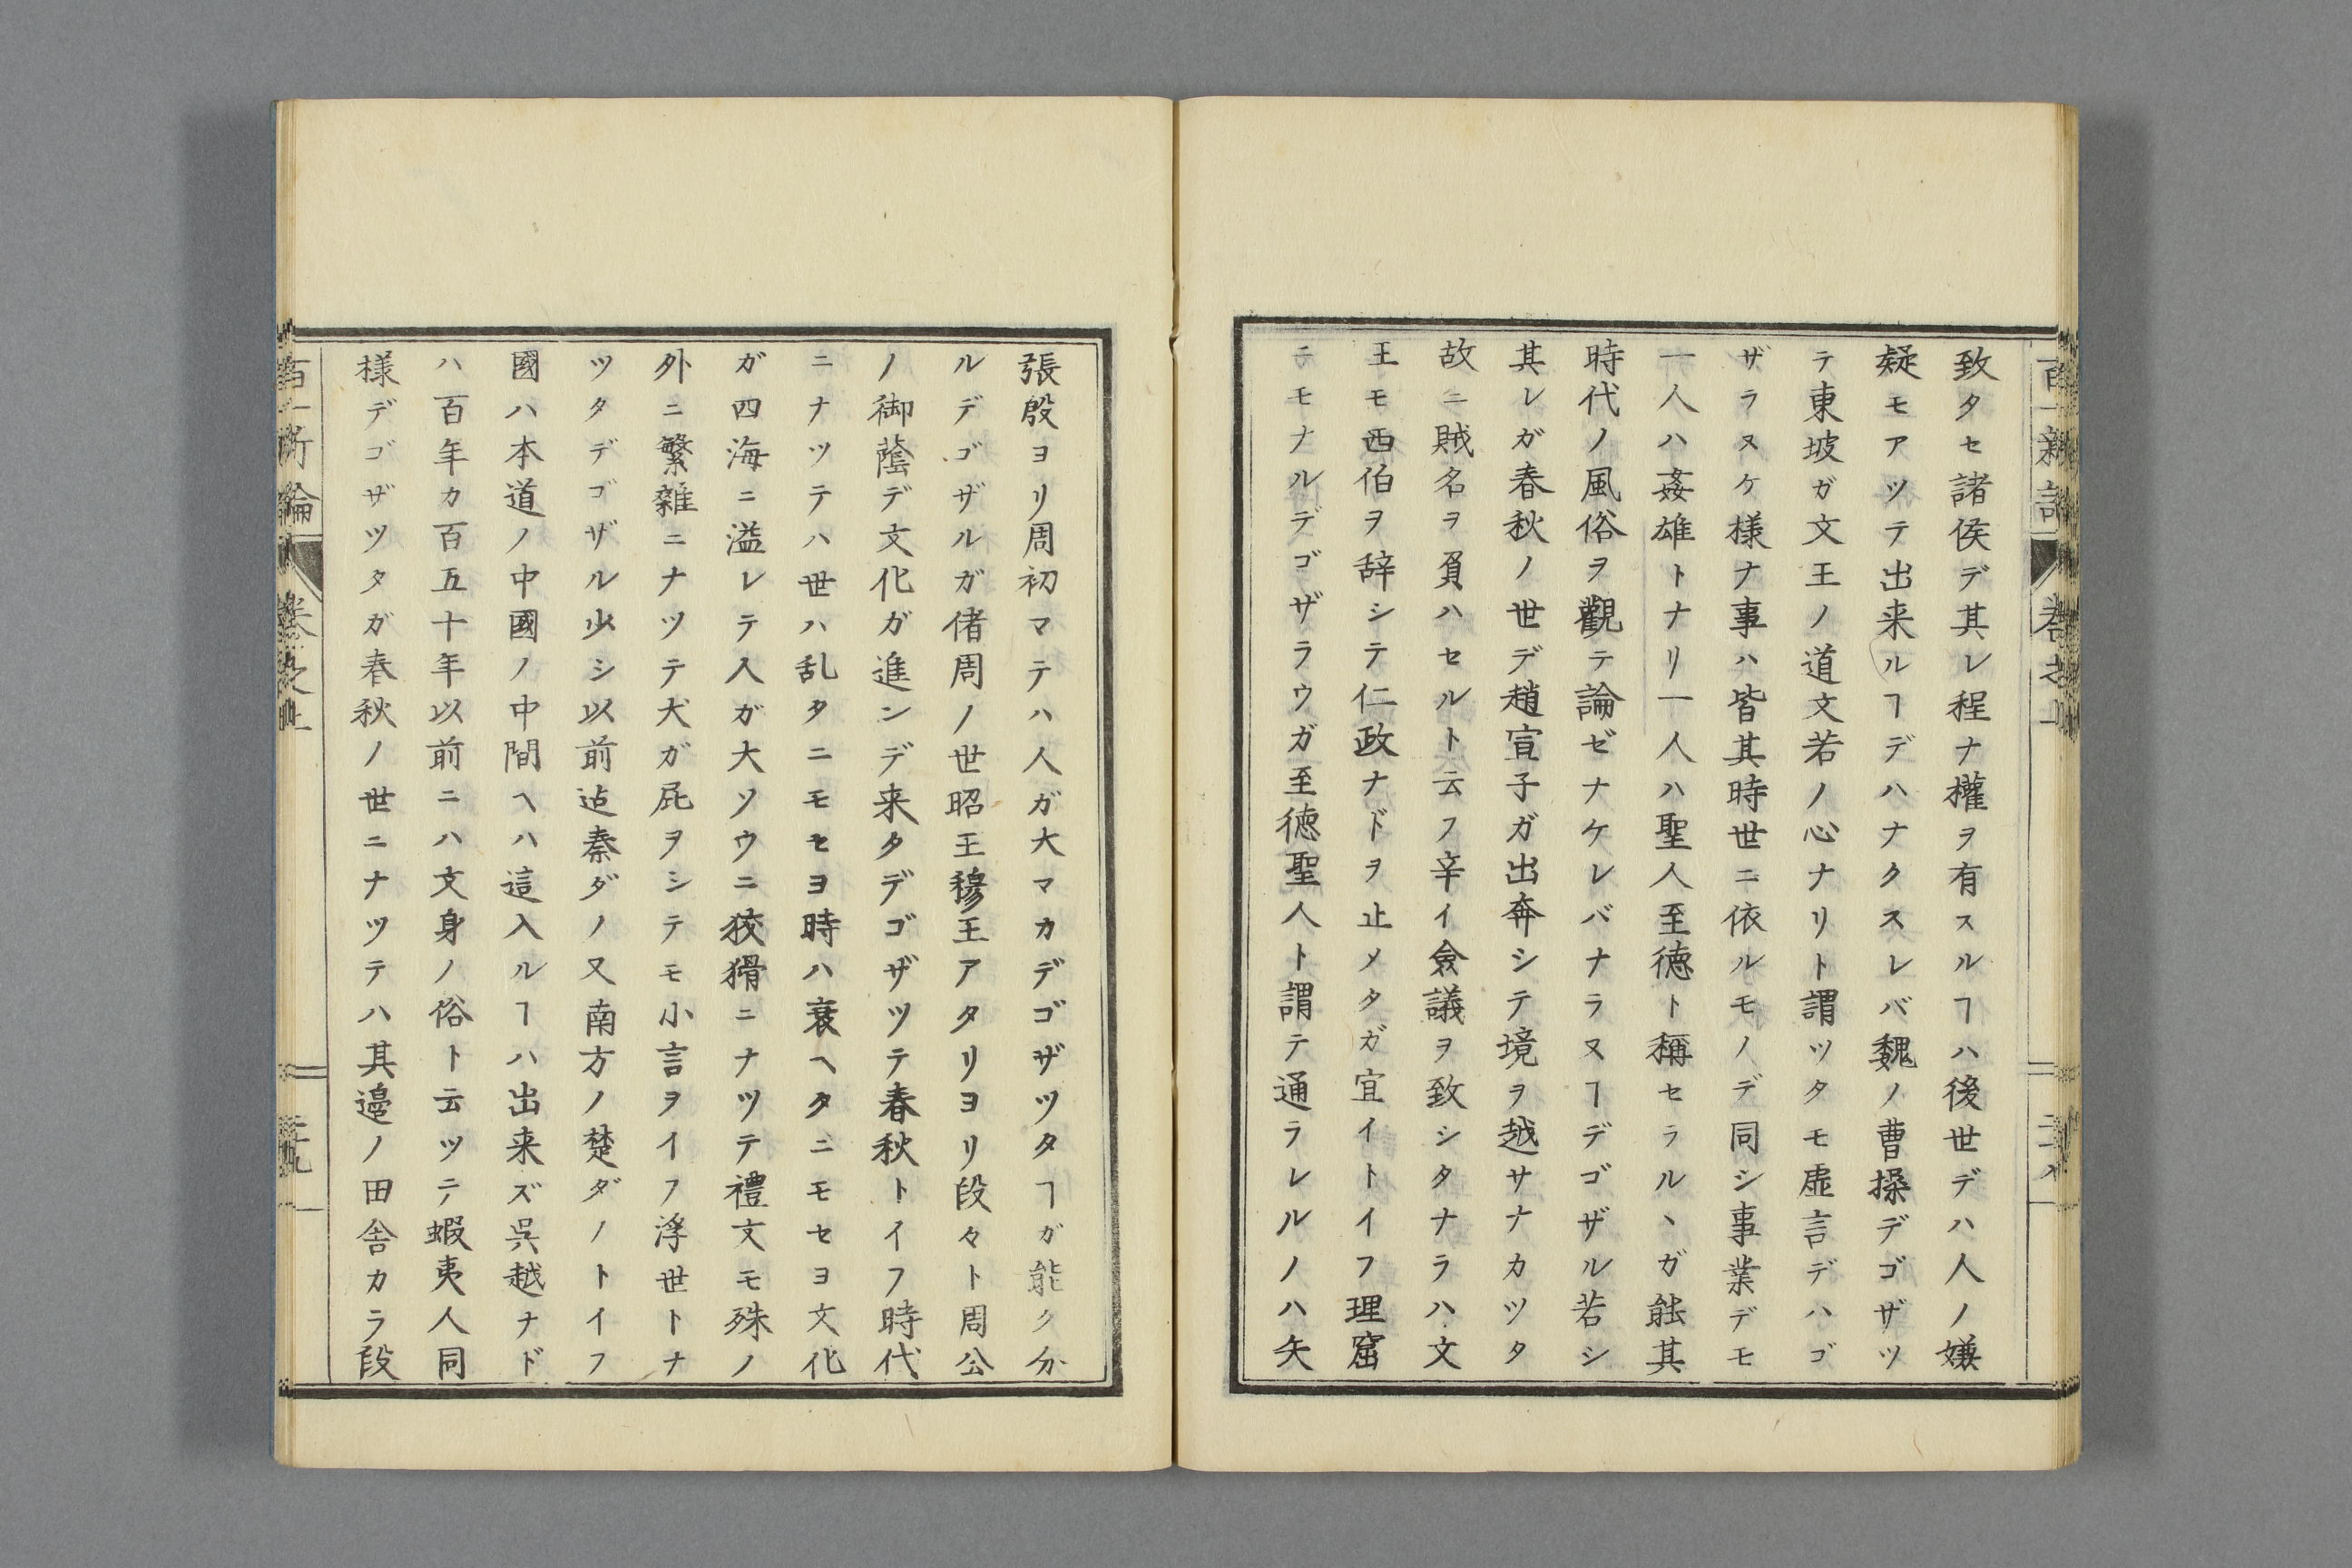 致タセ諸侯デ其レ程ナ權ヲ有スルヿハ後世デハ人ノ嫌
疑モアツテ出来ルヿデハナクスレバ魏ノ曹操デゴザツ
テ東坡ガ文王ノ道文若ノ心ナリト謂ツタモ虚言デハゴ
ザラヌケ様ナ事ハ皆其時世ニ依ルモノデ同シ事業デモ
一人ハ姦雄トナリ一人ハ聖人至德ト稱セラルヽガ能其
時代ノ風俗ヲ觀テ論ゼナケレバナラヌヿデゴザル若シ
其レガ春秋ノ世デ趙宣子ガ出奔シテ境ヲ越サナカツタ
故ニ賊名ヲ負ハセルト云フ辛イ僉議ヲ致シタナラハ文
王モ西伯ヲ辞シテ仁政ナドヲ止メタガ宜イトイフ理窟
ニモナルデゴザラウガ至德聖人ト謂テ通ラレルノハ矢
張殷ヨリ周初マテハ人ガ大マカデゴザツタヿガ能ク分
ルデゴザルガ偖周ノ世昭王穆王アタリヨリ段々ト周公
ノ御蔭デ文化ガ進ンデ来タデゴザツテ春秋トイフ時代
ニナツテハ世ハ乱タニモセヨ時ハ衰ヘタニモセヨ文化
ガ四海ニ溢レテ人ガ大ソウニ狡猾ニナツテ禮文モ殊ノ
外ニ繁雜ニナツテ犬ガ屁ヲシテモ小言ヲイフ浮世トナ
ツタデゴザル少シ以前迠秦ダノ又南方ノ楚ダノトイフ
國ハ本道ノ中國ノ中間ヘハ這入ルヿハ出来ズ呉越ナド
ハ百年カ百五十年以前ニハ文身ノ俗ト云ツテ蝦夷人同
様デゴザツタガ春秋ノ世ニナツテハ其邉ノ田舎カラ段